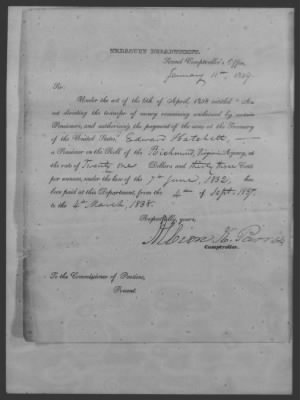 TREASURY DEPARTMENT,
Second Comptroller's Office,
January 11th 1839.
Sir:
Under the act of the 6th of April, 1838 entitled "An
act directing the transfer of money remaining unclaimed by certain
Pensioners, and authorizing the payment of the same at the Treasury
of the United States," Edward Hatchett,
a Pensioner on the Roll of the Richmond, Virginia Agency, at
the rate of Twenty one Dollars and thirty three Cents
per annum, under the law of the 7th June, 1832, has
been paid at this Department, from the 4th of Sept. 1837,
to the 4th March, 1838.
Respectfully, yours,
Albion K. Parris
Comptroller.
To the Commissioner of Pensions,
Present.